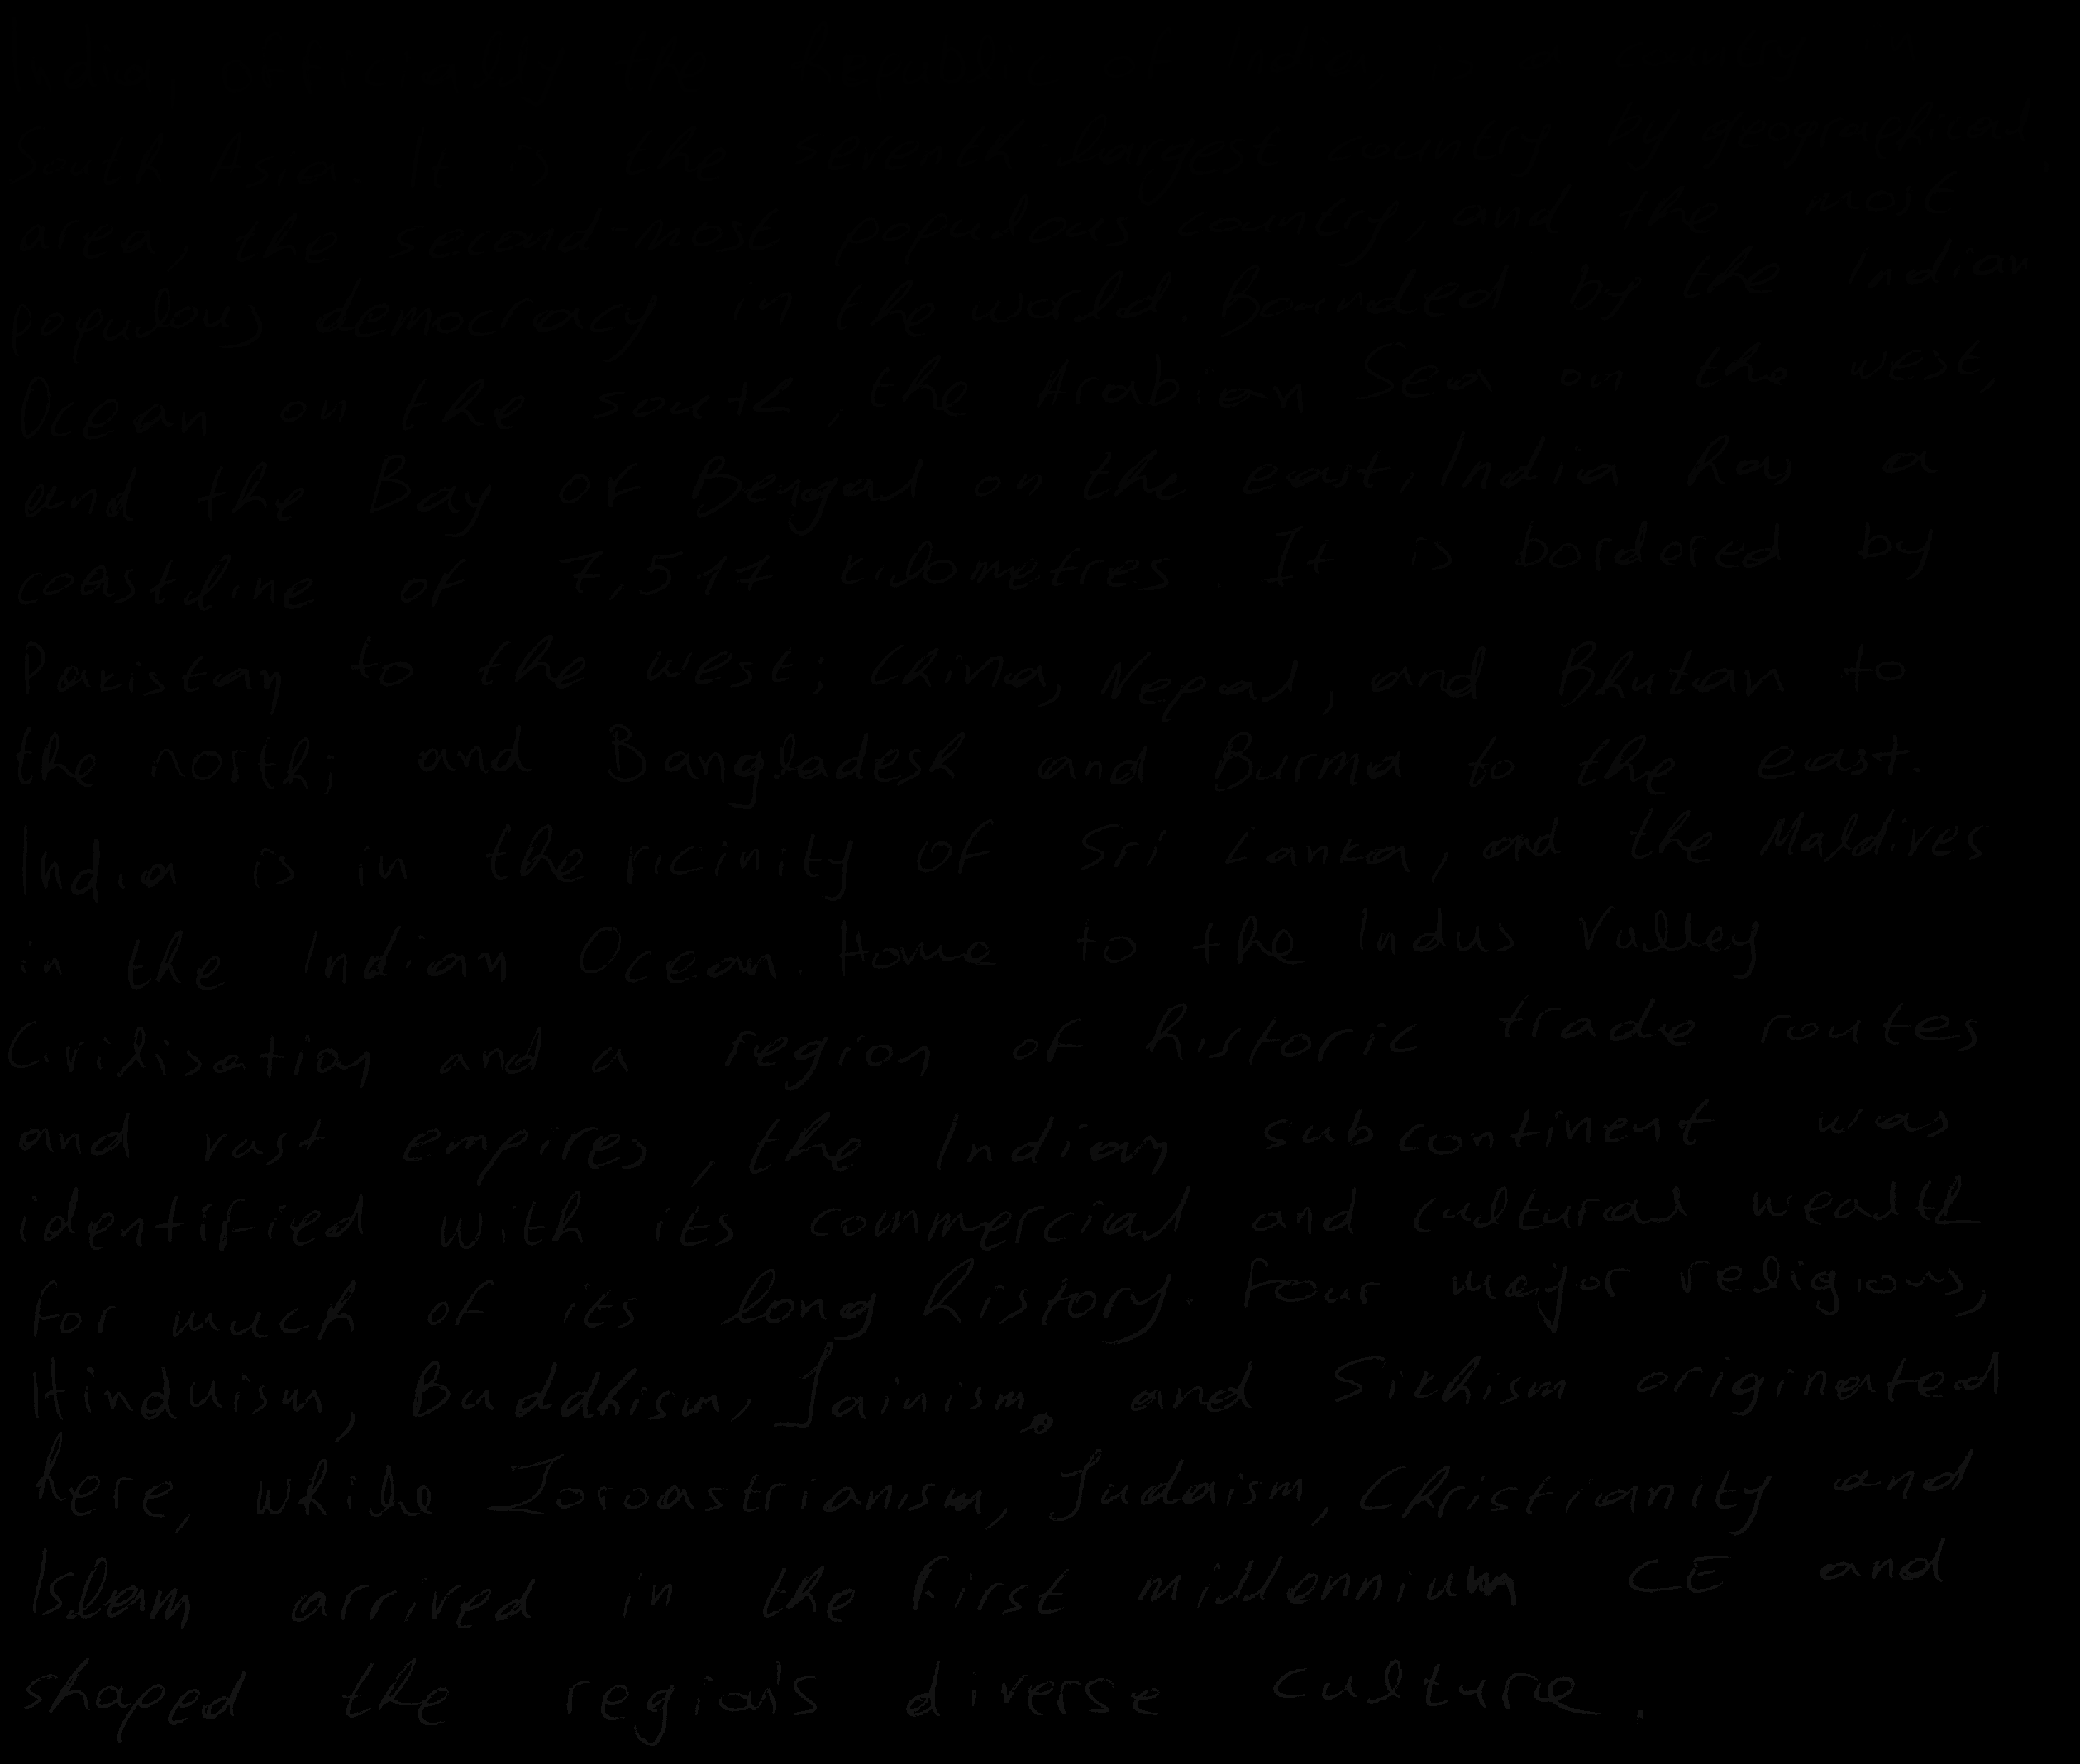 South Asia. It is the seventh largest country by geographical
area, the second-most populous country, and the most
populous democracy in the world. Bounded by the Indian
Ocean on the south, the Arabian Sea on the west,
and the Bay of Bengal on the east, India has a
coastline of 7,517 kilometres. It is bordered by
Pakistan to the west; China, Nepal, and Bhutan to
the north; and Bangladesh and Burma to the east.
India is in the vicinity of Sri Lanka, and the Maldives
in the Indian Ocean. Home to the Indus Valley
Civilisation and a region of historic trade routes
and vast empires, the Indian subcontinent was
identified with its commercial and cultural wealth
for much of its long history. Four major religious,
Hinduism, Buddhism, Jainism and Sikhism originated
here, while Zoroastrianism, Judaism, Christianity and
Islam arrived in the first millennium CE and
shaped the region's diverse culture.